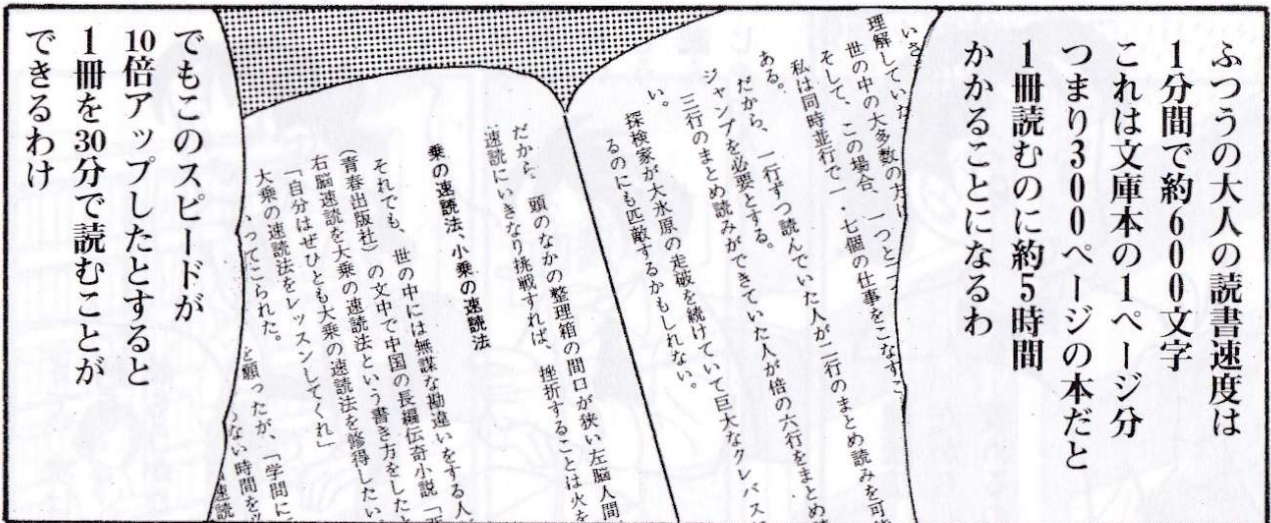 ふつうの大人の読書速度は
1分間で約600文字
これは文庫本の1ページ分
つまり300ページの本だと
1冊読むのに約5時間
かかることになるわ
いさ
理解していな
世の中の大多数の方
そして、この場合、一つと
私は同時並行で一・七個の仕事をこなすこ
ある。
だから、一行ずつ読んでいた人が二行のまとめ読みを可能
ジャンプを必要とする。
三行のまとめ読みができていた人が倍の六行をまとめ
い。
探検家が大氷原の走破を続けていて巨大なクレバスに
るのにも匹敵するかもしれない。
だから、頭のなかの整理箱の間口が狭い左脳人間
速読にいきなり挑戦すれば、挫折することは火を
乗の速読法、小乗の速読法
それでも、世の中には無謀な勘違いをする人
(青春出版社)の文中で中国の長編伝奇小説「
右脳速読を大乗の速読法という書き方をしたと
「自分はぜひとも大乗の速読法を修得したい
大乗の速読法をレッスンしてくれ」
ってこられた。
を願ったが、「学問に
のない時間を
速読
でもこのスピードが
10倍アップしたとすると
1冊を30分で読むことが
できるわけ